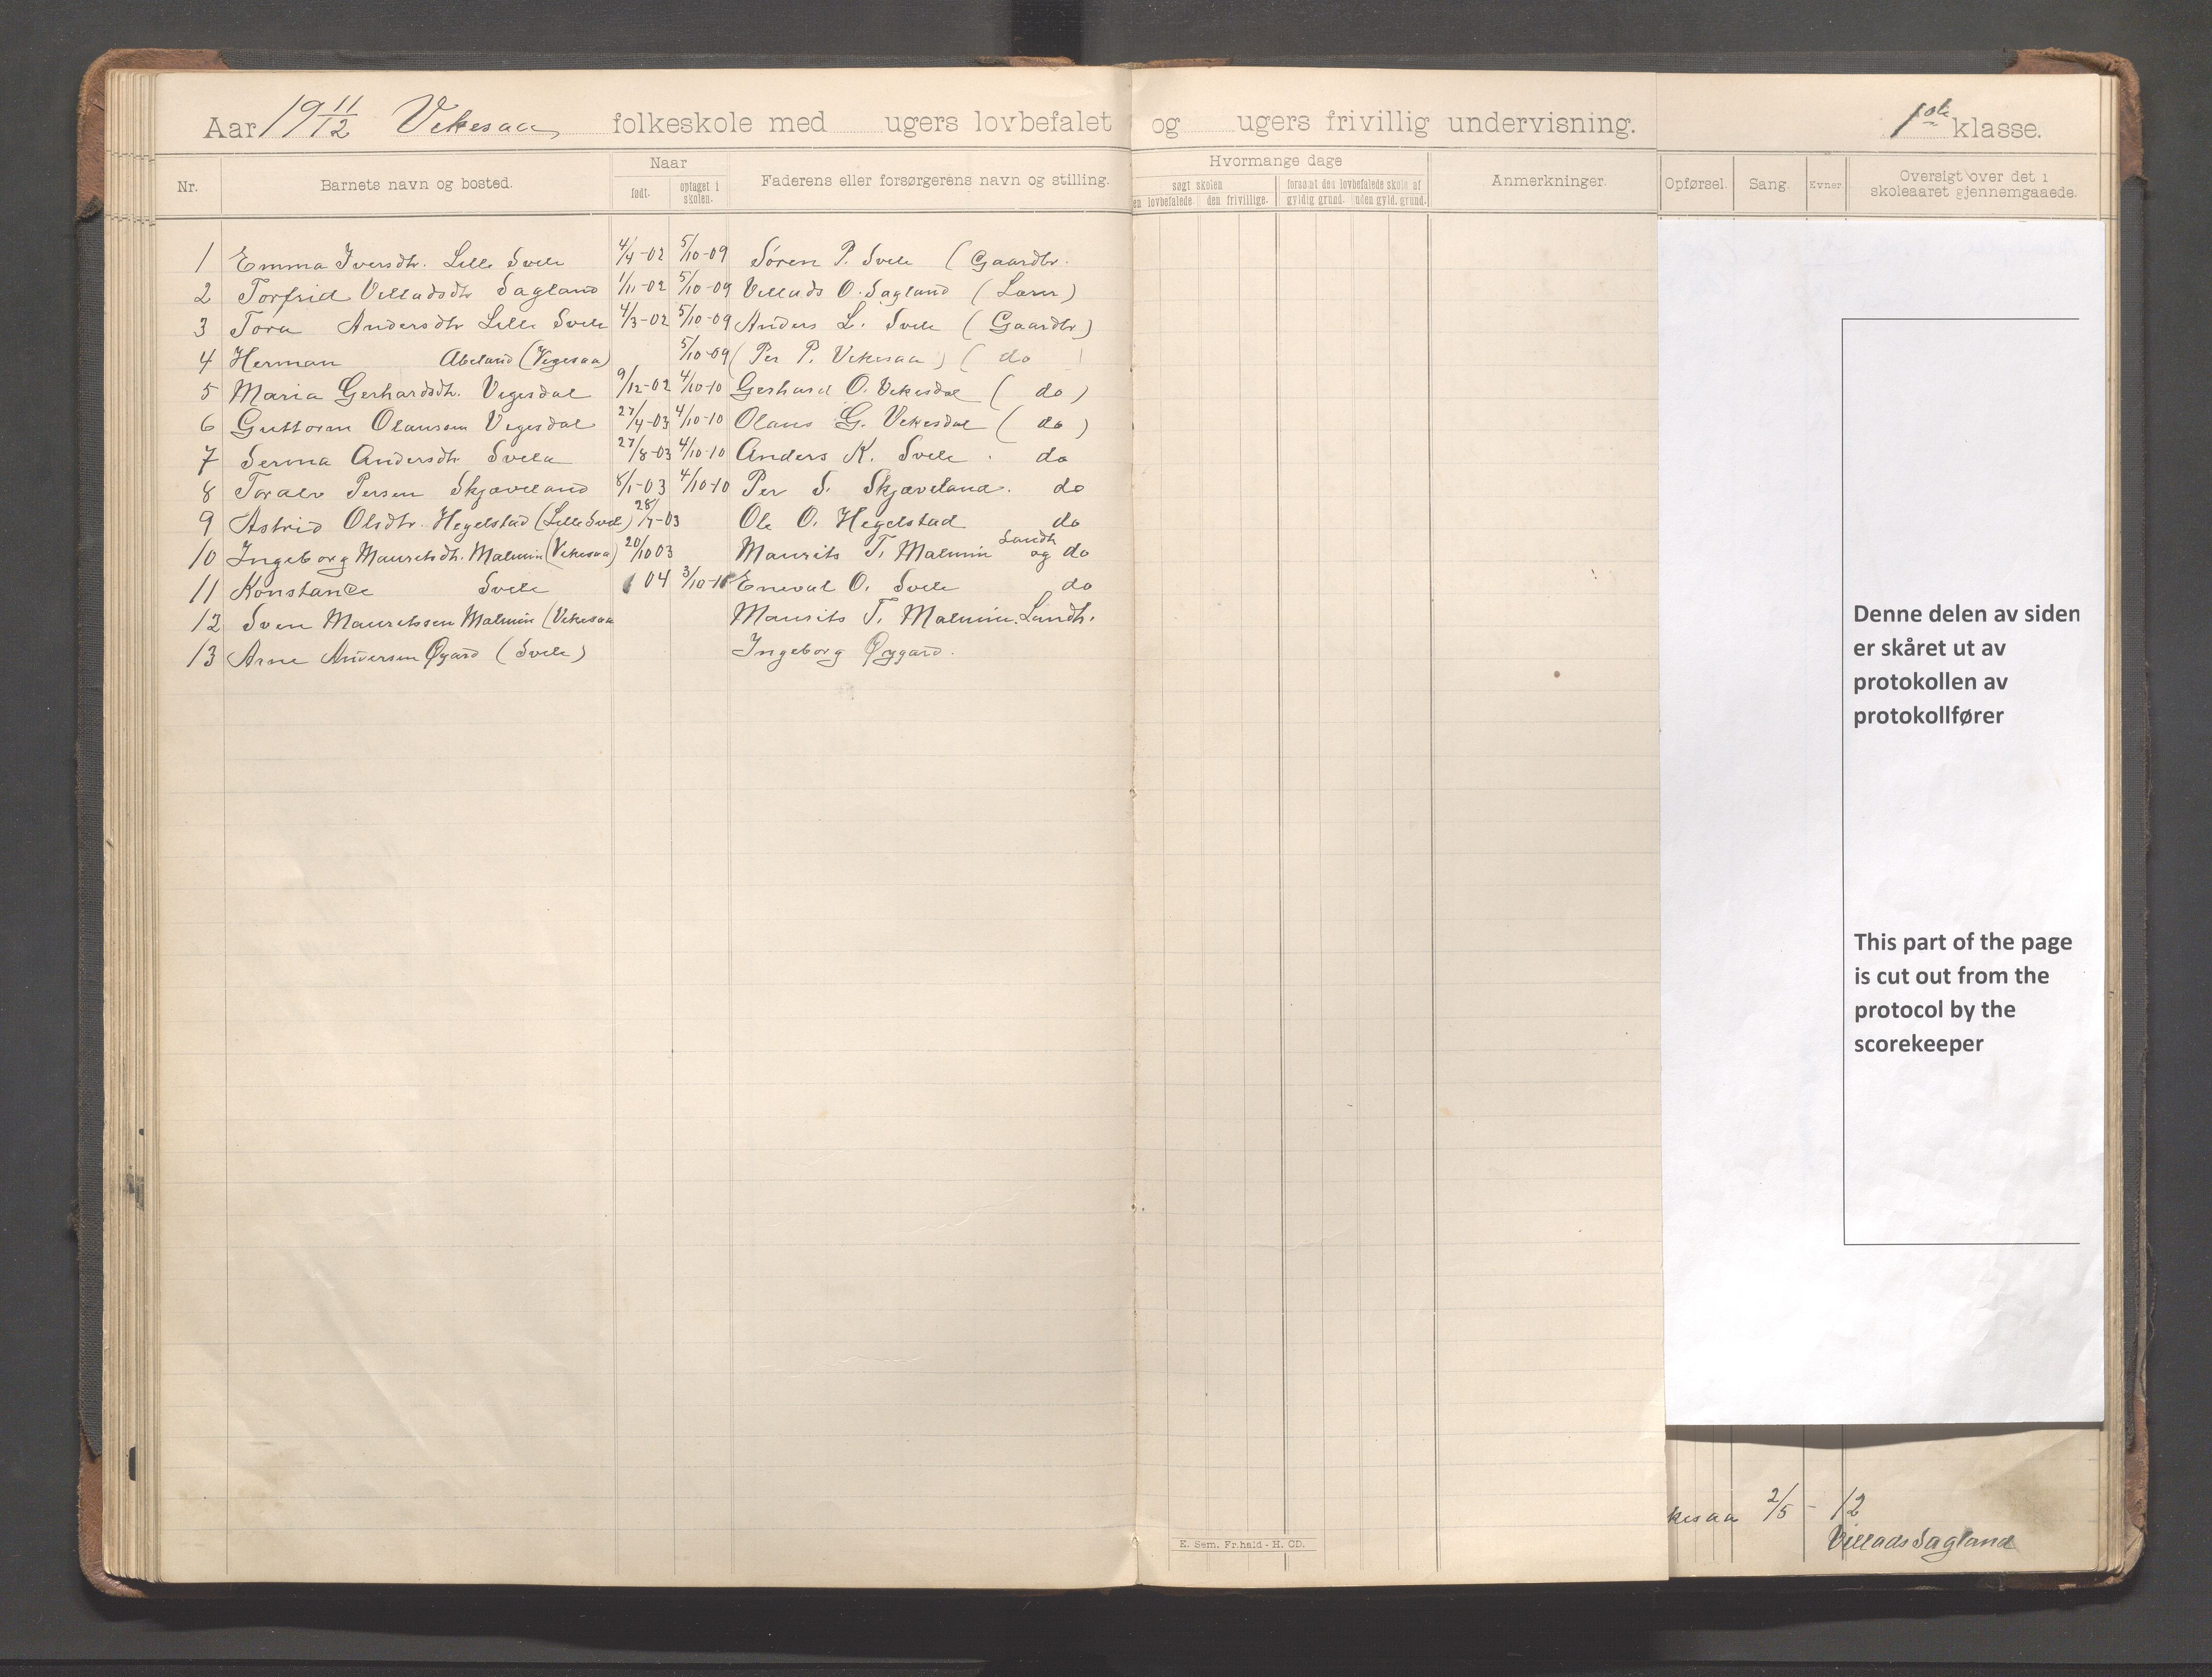 Aar 19 11/12 Vikesaa folkeskole med ugers lovbefalet og ugers frivillig undervisning. 1ste klasse.
Nr. Barnets navn og bosted. Naar født. optaget i skolen. Faderens eller forsørgerens navn og stilling. Hvormange dage søgt skolen en lovbefalede den frivillige. forsømt den lovbefalede skole af gyldig grund. uden gyld. grund. Anmerkninger. Opførsel. Sang. Evner. Oversigt over det i skoleaaret gjennemgaaede.
1 Emma Iversdtr. Lille Svele 4/4-02 5/10-09 Søren P. Svele (Gaardbr.
2 Torfrid Villadsdtr Sagland 1/11-02 5/10-09 Villads O. Sagland (Lærer)
3 Tora Andersdtr Lille Svele 4/3-02 5/10-09 Anders L. Svele (Gaardbr)
4 Herman Abeland (Vegesaa) 5/10-09 (Per P. Vikesaa) (do
5 Maria Gerhardsdtr. Vegesdal 9/12-02 4/10-10 Gerhard O. Vikesdal (do)
6 Guttorm Olaussen Vegesdal 27/4-03 4/10-10 Olaus G. Vikesdal (do)
7 Serina Andersdtr Svela 27/8-03 4/10-10 Anders K. Svele do
8 Toralv Persen Skjæveland 8/1-03 4/10-10 Per S. Skjæveland. do
9 Astrid Olsdtr. Hegelstad (Lille Svel) 28/7-03 Ole O. Hegelstad do
10 Ingeborg Mauritsdtr. Malmin (Vikesaa) 20/10 03 Maurits T. Malmin Landh og do
11 Konstance Svele 04 3/10-11 Eneval O. Svele do
12 Sven Mauritssen Malmin (Vikesaa Maurits T. Malmin. Landh.
13 Arne Andersen Øgard (Svele) Ingeborg Øygard.
Denne delen av siden
er skåret ut av
protokollen av
protokollfører
This part of the page
is cut out from the
protocol by the
scorekeeper
kesaa 2/5 - 12
Villads Sagland
E. Sem. Fr.hald - H. CD.